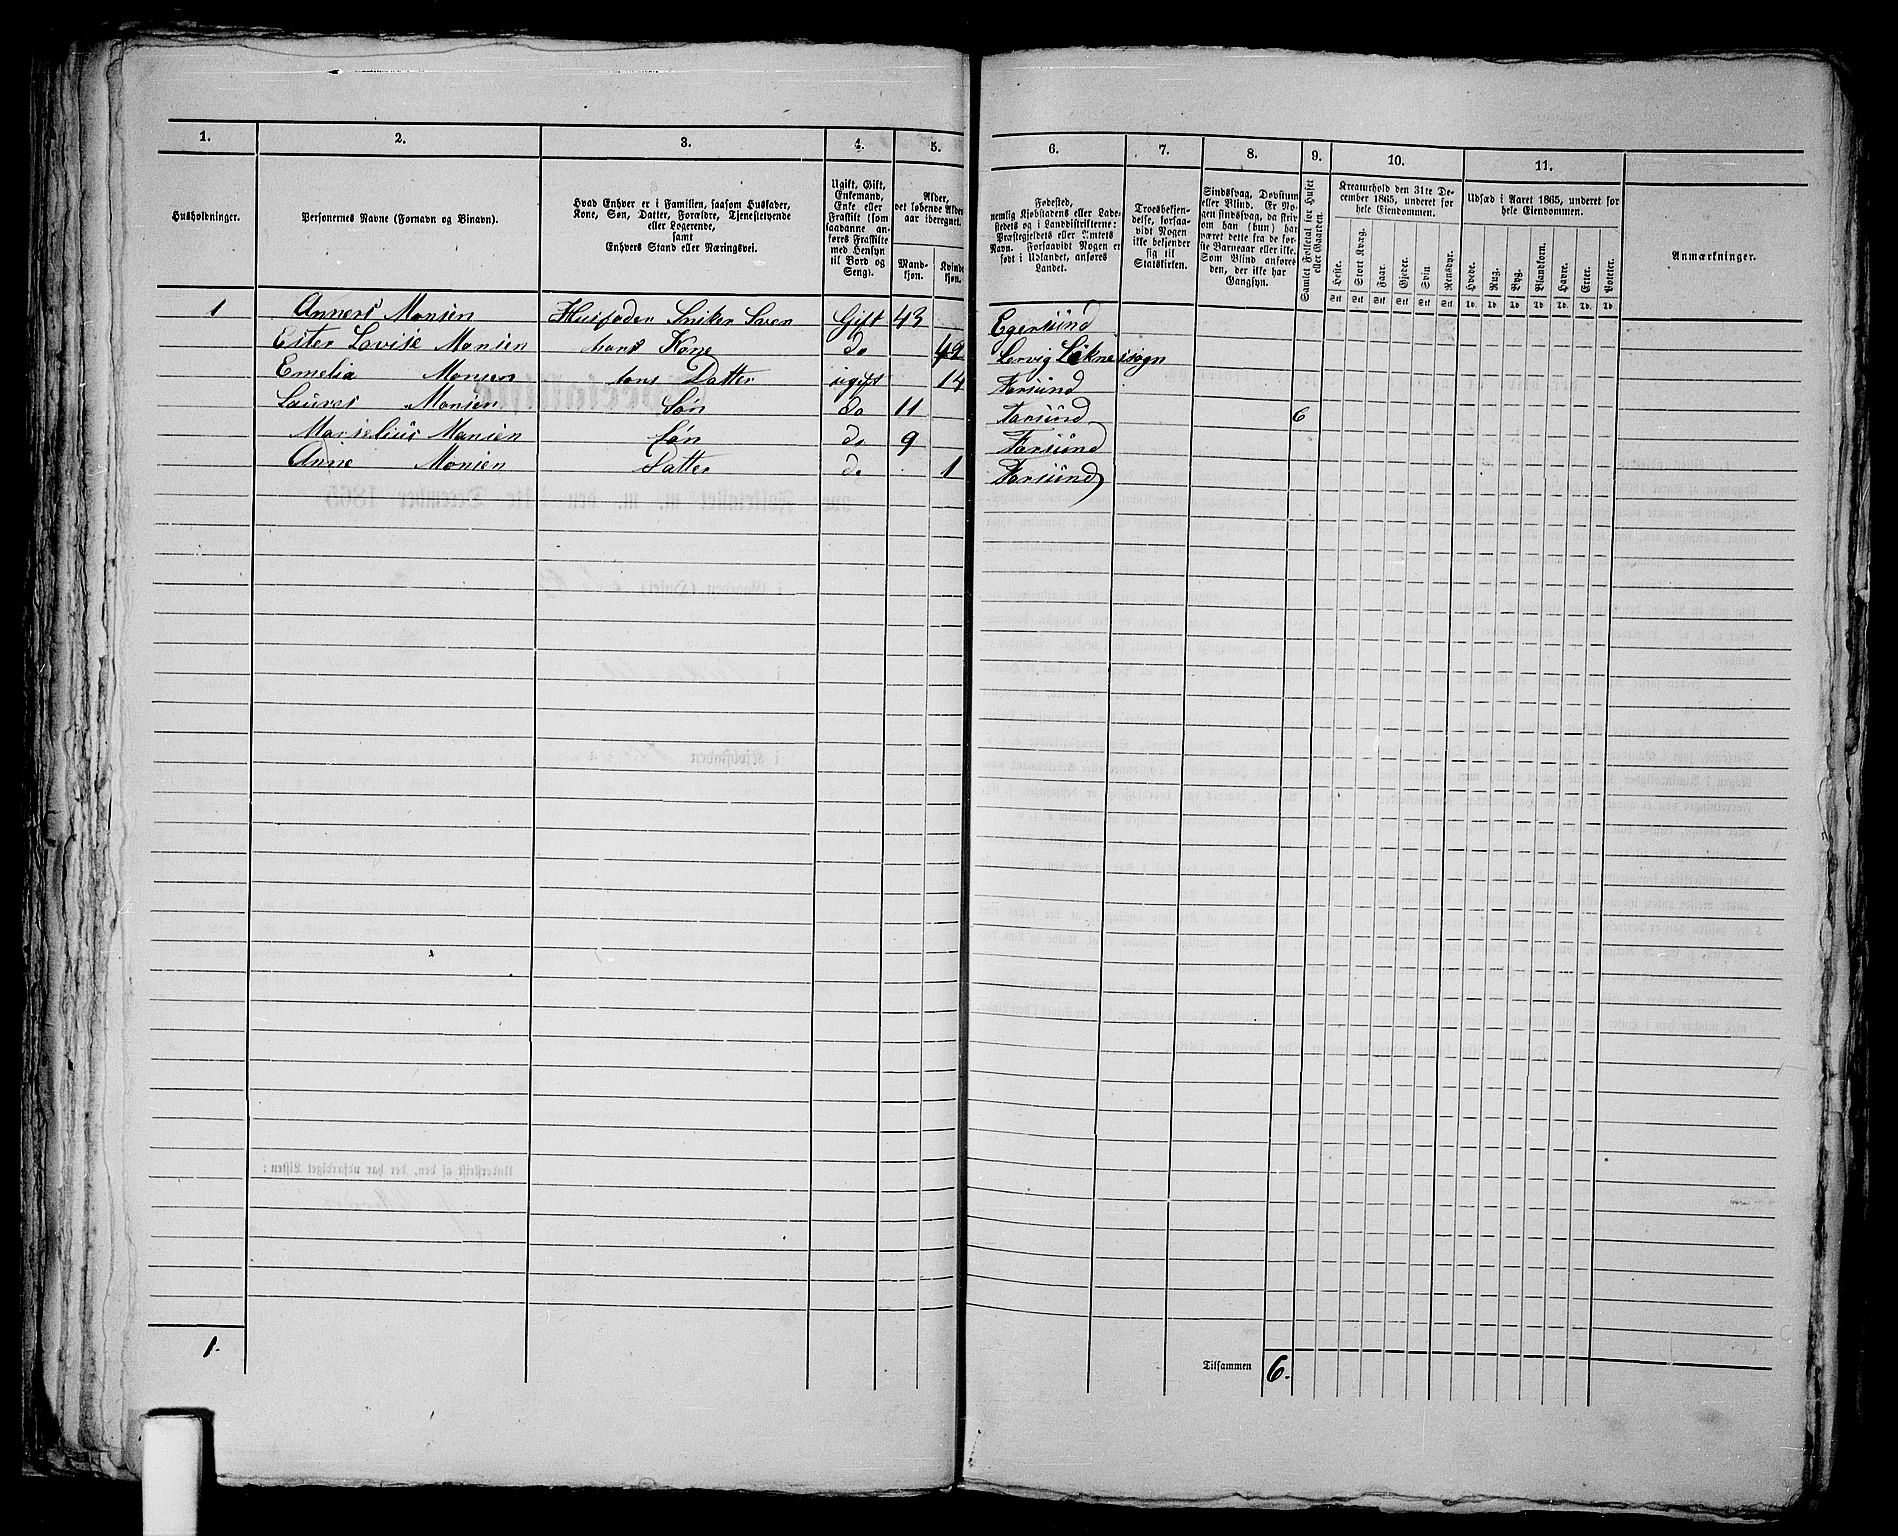 1. 2. 3. 4. 5. 6. 7. 8. 9. 10. 11.
Husholdninger.
Personernes Navne (Fornavn og Binavn).
Hvad Enhver er i Familien, saasom Husfader,
Kone, Søn, Datter, Forældre, Tjenestetyende
eller Logerende,
samt
Enhvers Stand eller Næringsvei.
Ugift, Gift,
Enkemand,
Enke eller
Fraskilt (som
saadanne an-
føres Fraskilte
med Hensyn
til Bord og
Seng).
Alder,
det løbende Alders-
aar iberegnet.
Mand-
kjøn.
Kvinde-
kjøn.
Fødested,
nemlig Kjøbstadens eller Lade-
stedets og i Landdistrikterne:
Præstegjeldets eller Amtets
Navn. Forsaavidt Nogen er
født i Udlandet, anføres
Landet.
Troesbekjen-
delse, forsaa-
vidt Nogen
ikke bekjender
sig til
Statskirken.
Sindssvag, Døvstum
eller Blind. Er No-
gen sindssvag, da skriv
om han (hun) har
været dette fra de før-
ste Barneaar eller ikke.
Som Blind anføres
den, der ikke har
Gangsyn.
Samlet Folketal for Huset
eller Gaarden.
Kreaturhold den 31te De-
cember 1865, underet for
hele Eiendommen.
Heste. Stort Kvæg. Faar. Gjeder. Svin Rensdyr.
Stk Stk Stk Stk Stk Stk
Udsæd i Aaret 1865, underet for
hele Eiendommen.
Hvede. Rug. Byg. Blandkorn. Havre. Erter. Poteter.
Td. Td. Td. Td. Td. Td. Td.
Anmærkninger.
1 Anners Monsen Husfader Sniker Sven Gift 43 Egersund
Ester Lovise Monsen hans Kone do 49 Lervig sogn
Emelia Monsen hans Datter ugift 14 Farsund
Laures Monsen Søn do 11 Farsund 6
Marselius Monsen Søn do 9 Farsund
Anne Monsen Datter do 1 Farsund
1.
Tilsammen 6.